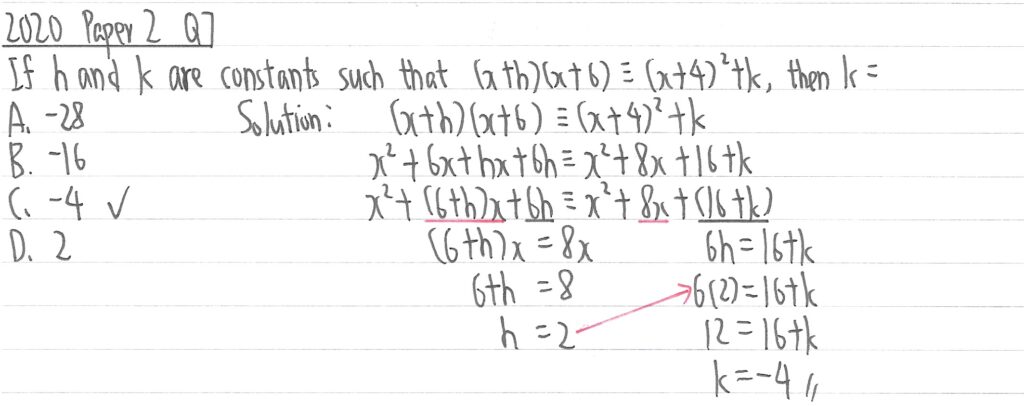 2020 Paper 2 Q7
If h and k are constants such that (x+h)(x+6) ≡ (x+4)²+k, then k =
A. -28 Solution: (x+h)(x+6) ≡ (x+4)²+k
B. -16 x²+6x+hx+6h ≡ x²+8x+16+k
C. -4 ✓ x²+(6+h)x+6h ≡ x²+8x+(16+k)
D. 2 (6+h)x = 8x 6h = 16+k
6+h = 8 6(2) = 16+k
h = 2 12 = 16+k
k = -4 //